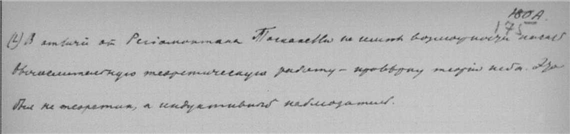 180А.
175
(4) В отличiи от Региомонтана Тосканелли не имѣлъ возможности
вычислительную теоретическую работу – проверку теорiи неба. Это
был не теоретик, а индуктивный наблюдатель.